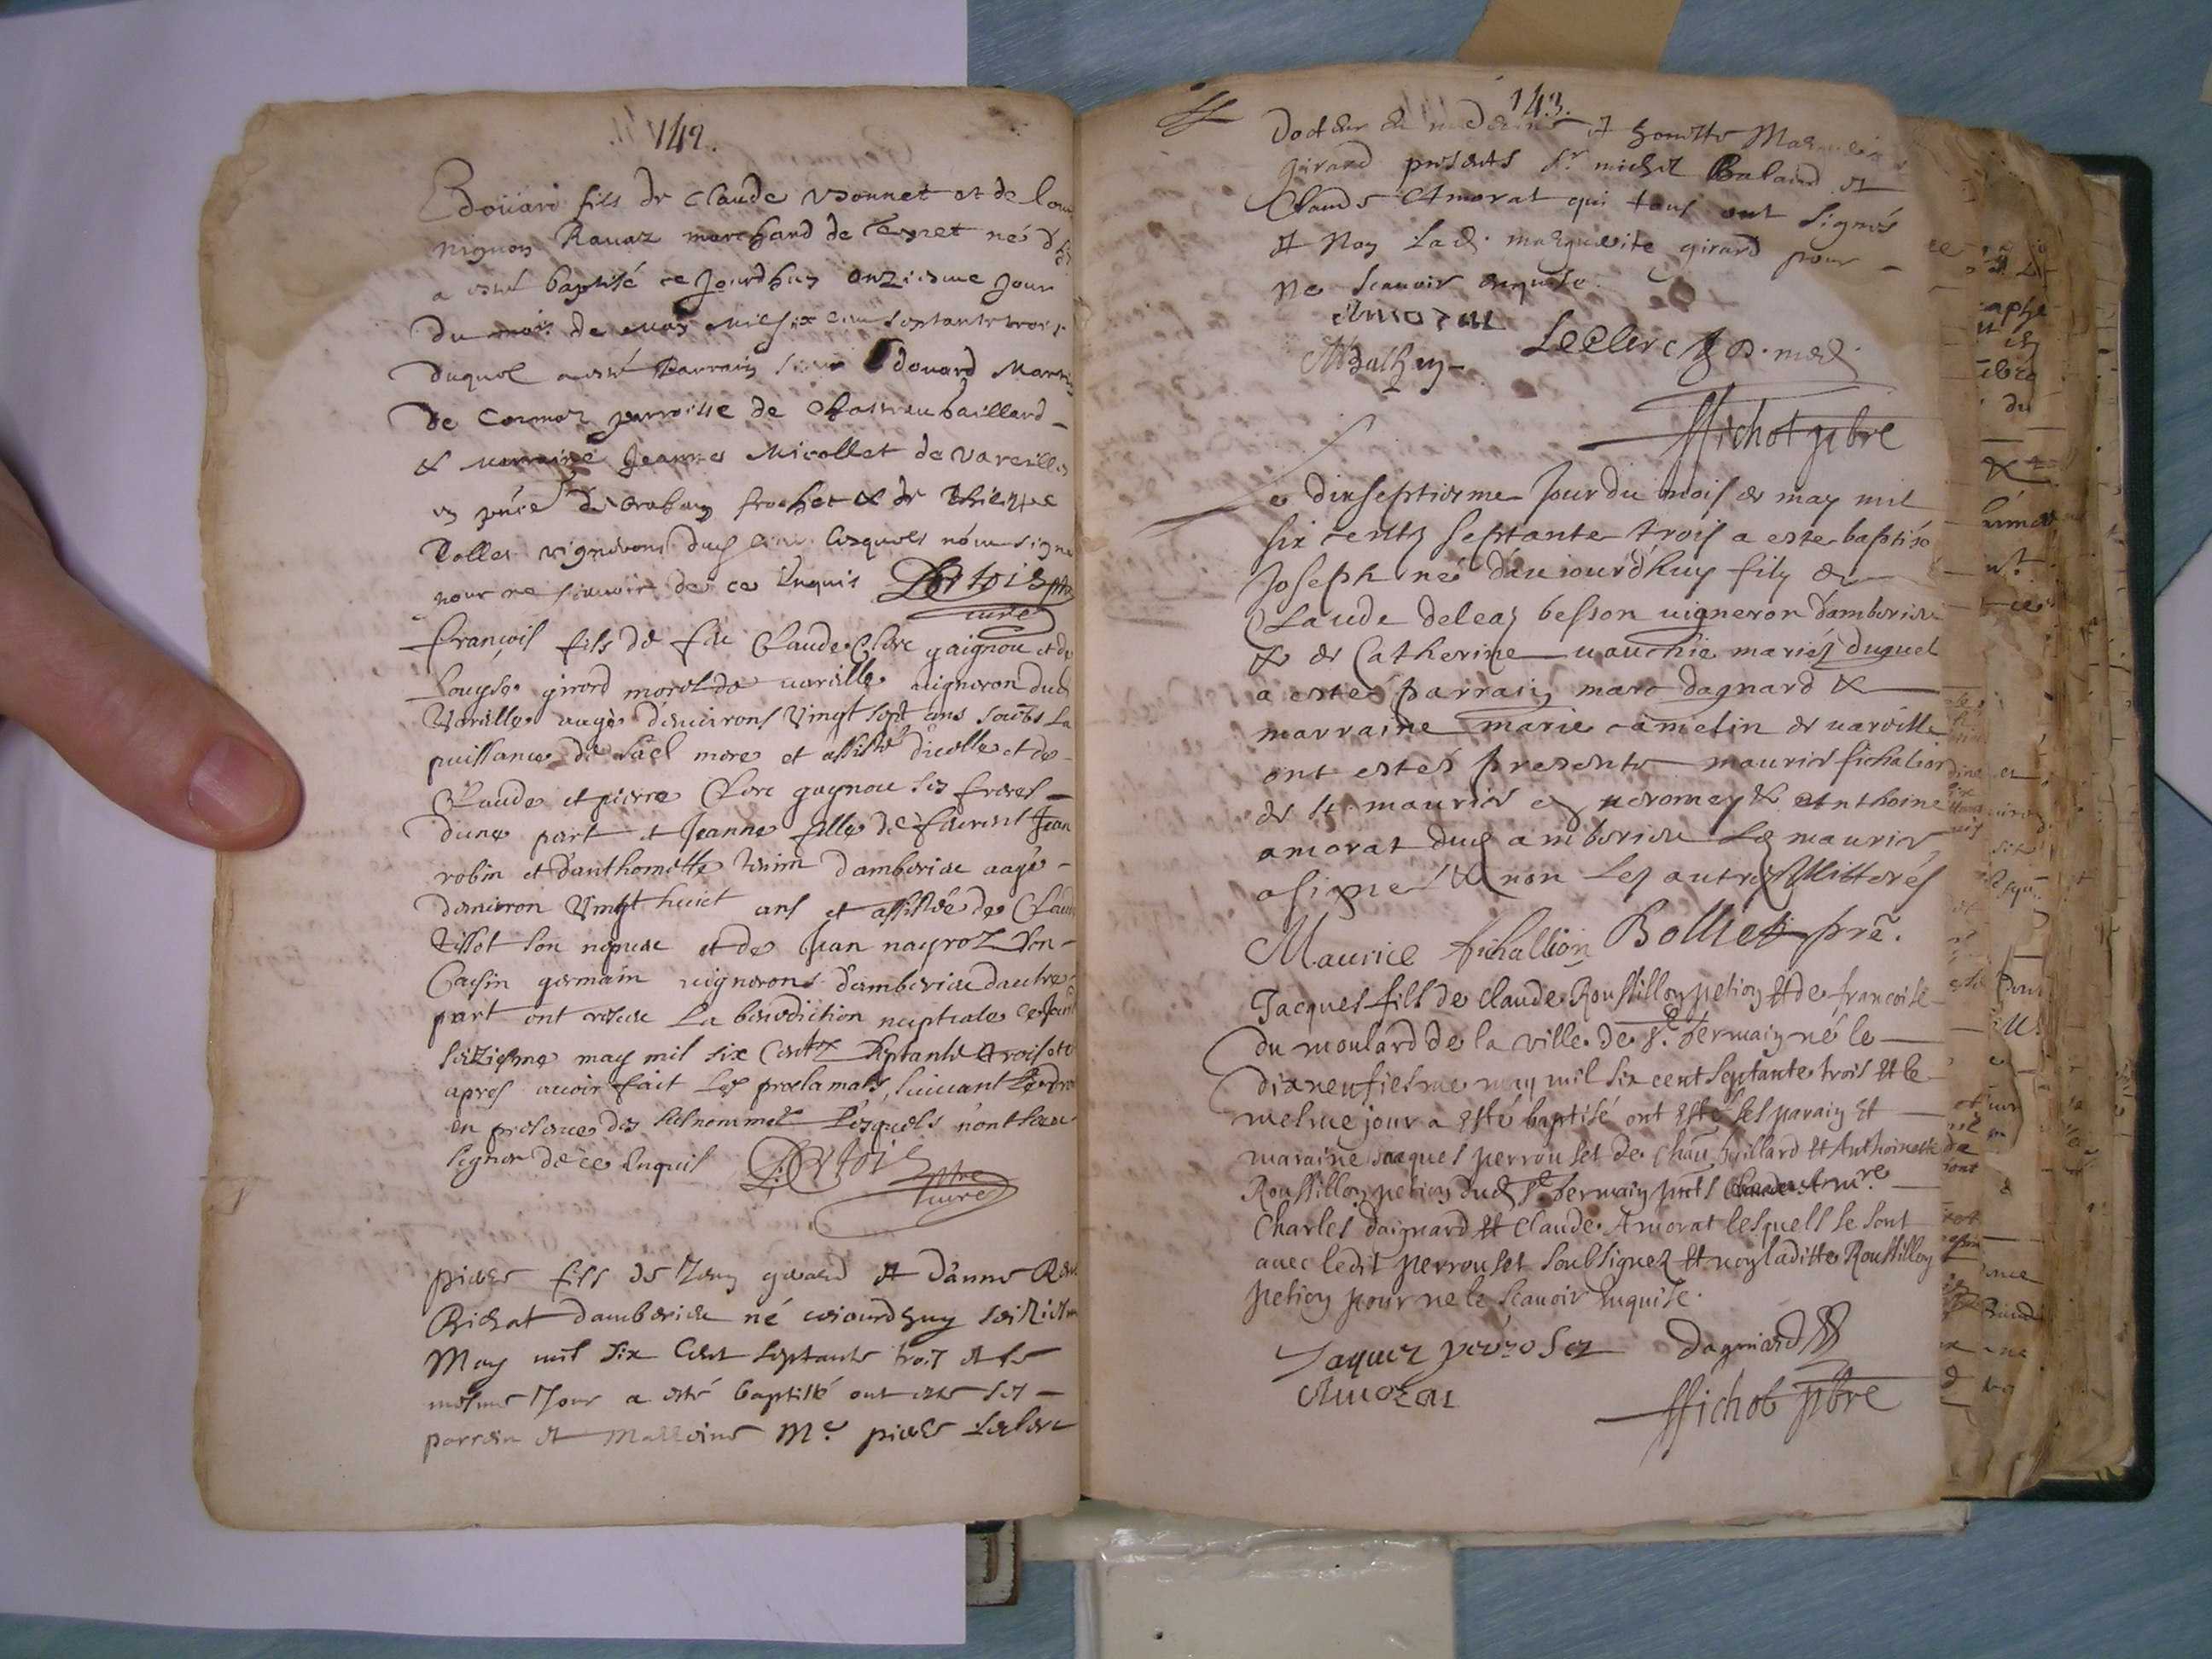 142.
Edoüard fils de Claude vsonnet et de lou
nignon Ravaz marchand de né
a esté baptisé ce jourdhuy onziesme jour
du mois de may mil six cens septante trois
duquel a esté Parrain sieur Edouard Martin
de Cormoz parroisse de Chasteau baillard
& marraine Jeanne Micollet de Vareilles
en pńce de frochet & de
vignerons dud lieu lesquels n'ont signé
pour ne scavoir de ce Enquis Dortois ptre
curé
François fils de feu Claude Clerc gaignou et de
Louyse girord morel de vareille vigneron dud
Vareille aagé d'environs Vingt sept ans soubs la
puissance de sad mere et assisté d'icelle et de
Claude et pierre Clerc gagnou ses freres
d'une part et Jeanne fille de feu Jean
robin et d'anthomette d'amberieu aagé
d'environ Vingt huict ans et assistée de Claude
tissot son nepveu et de Jean nayroz son
Cosin germain vignerons d'amberieu d'autre
part ont receue La benediction nuptiale ce jourd
seiziesme may mil six Centz Septante & trois et ce
apres avoir fait Les proclamats, suivant Lordre
en presence des susnommés Lesquels n'ont sceu
signer de ce Enquis Dortois
ptre
curé
pierre fils de Jean girard et d'anne
Richat damberieu né cejourdhuy seiziesme
May mil six Cent septante trois et le
mesme Jour a esté baptisé ont esté ses
parrain et Marraine Mre pierre Leclerc
143.
Docteur en medecine et honeste Marguerite
girard presents Sr. michel Balaud et
Claude Amorat qui tous ont signés
et Non lad. marguerite girard pour
ne scavoir enquise.
Amorat
Leclerc D. med.
Michot pbre
Le dixseptiesme Jour du mois de may mil
six centz septante trois a este baptisé
Joseph né d'aujourdhuy filz de
Claude deleaz besson vigneron damberieu
& de Catherine vauchie mariéz duquel
a estés parrain marc dagnard &
marraine marie camelin de vareille
ont estés presents maurice fichalion
de St maurice de remey & Anthoine
amorat dud amberieu Led maurice
a signé & non Les autres illitterés
Maurice fichallion Bolliet prẽ.
Jacques fils de claude Roussillon petion et de francoise
du moulard de la ville de St. Germain né le
dixneufiesme may mil six cent septante trois et le
mesme jour a esté baptisé ont esté ses parain et
maraine Jacques perrouset de Chau Gaillard et Anthoinette
Roussillon petion dud St germain pnts
Charles daignard et Claude Amorat lesquels se sont
avec ledit perrouset soubsignez et non laditte Roussillon
petion pour ne le scavoir enquise.
Jaques perroset dagniard
Amorat
Michot pbre